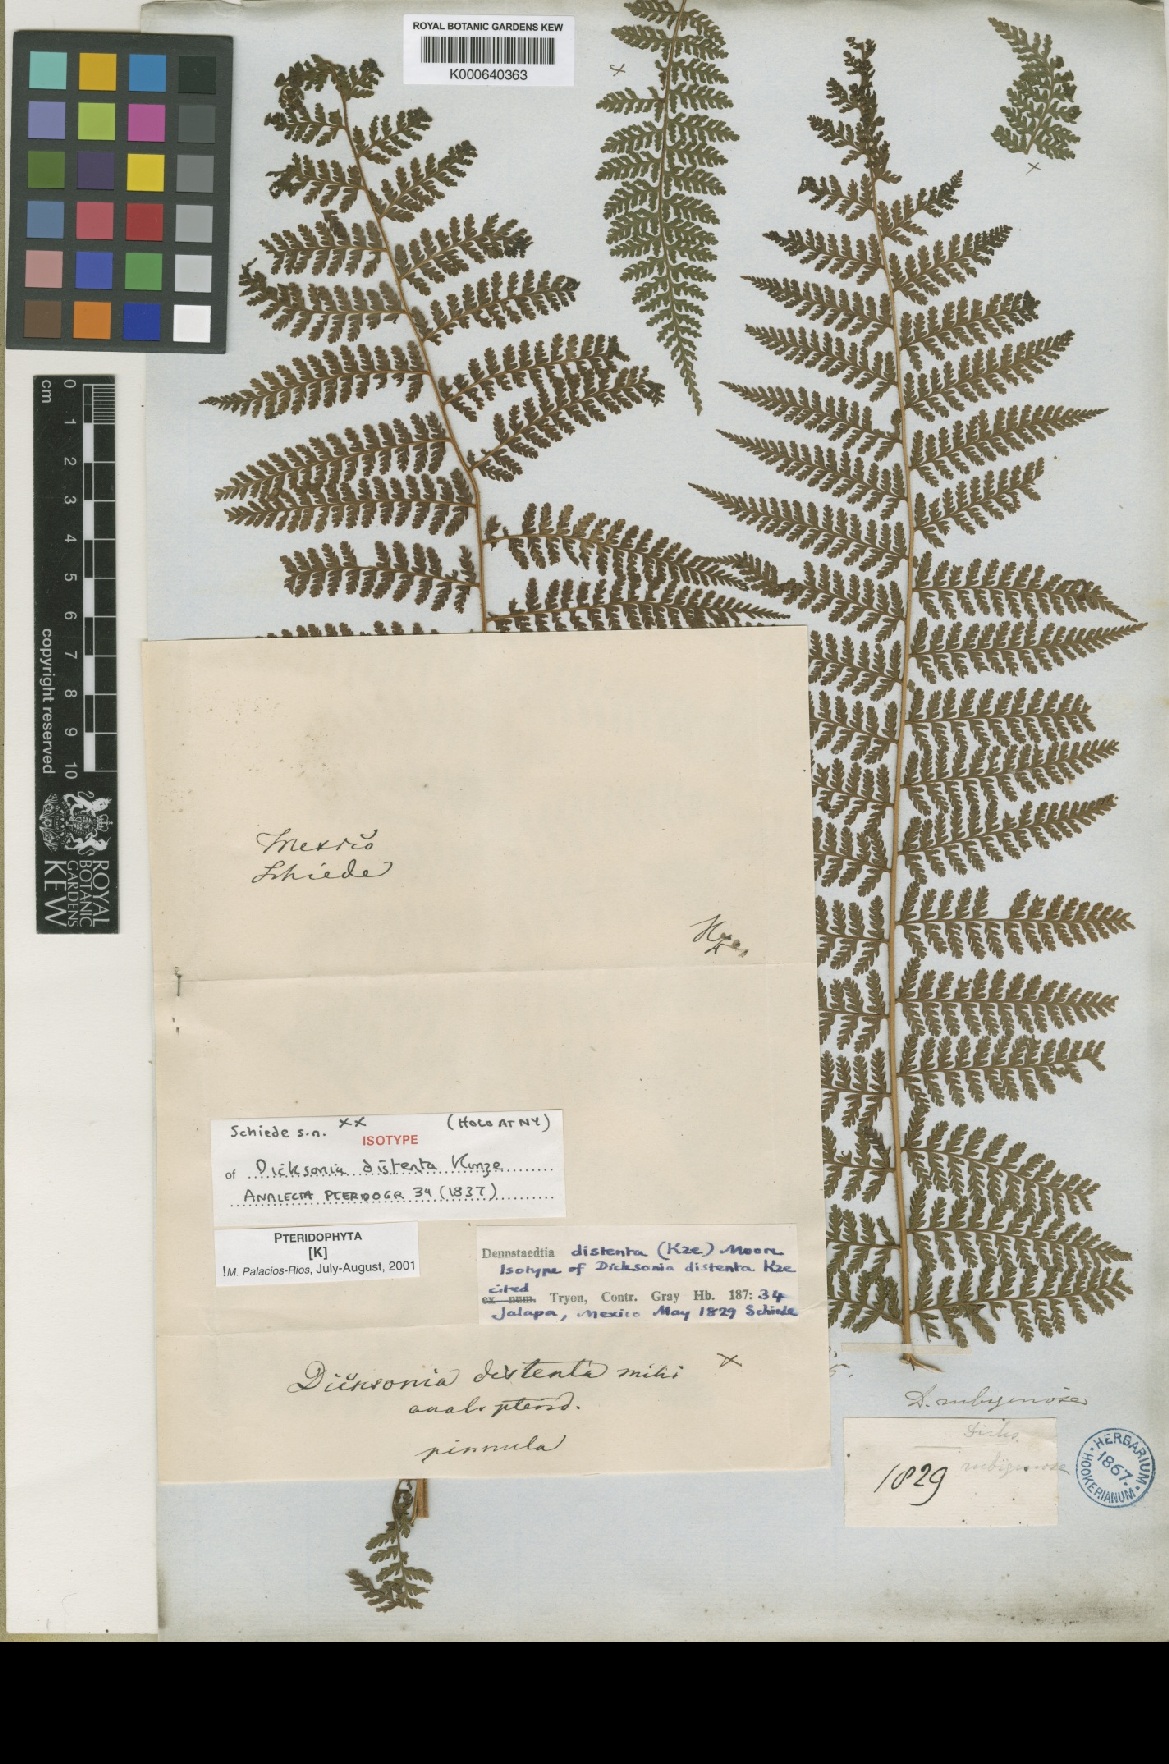 ROYAL BOTANIC GARDENS KEW
K000640363
cm
0
1
2
3
4
5
6
7
8
9
10
copyright reserved
ROYAL
BOTANIC
GARDENS
KEW
Mexico
Schiede
Schiede s.n. xx (HOLO AT NY)
ISOTYPE
of Dicksonia distenta Kunze
ANALECTA PTERIDOGR 34 (1837)
PTERIDOPHYTA
[K]
M. Palacios-Rios, July-August, 2001
Dennstaedtia distenta (Kze) Moore
Isotype of Dicksonia distenta Kze
cited
ex num. Tryon, Contr. Gray Hb. 187: 34
Jalapa, Mexico May 1829 Schiede
Dicksonia distenta mihi x
anal. pterid.
pinnula
D. rubiginosa
Dicks.
rubiginosa
1829
HERBARIUM
1867.
HOOKERIANUM